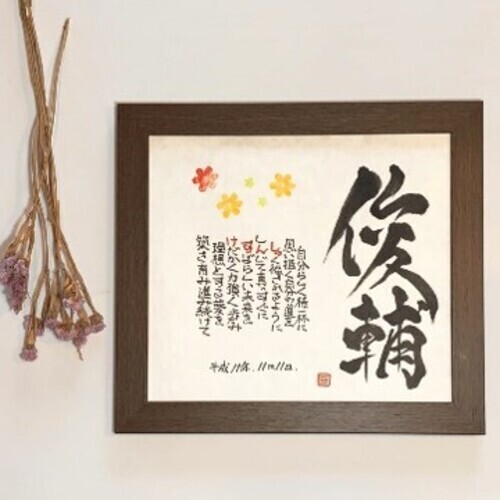 俊輔
自分らしく精一杯に
思い描く自分の道を
しっかり歩いてゆけるように
しんじて真っすぐに
すばらしい未来を
けだかく力強く歩み
理想とする夢を
築き育み進み続けて
平成11年.11月11日.